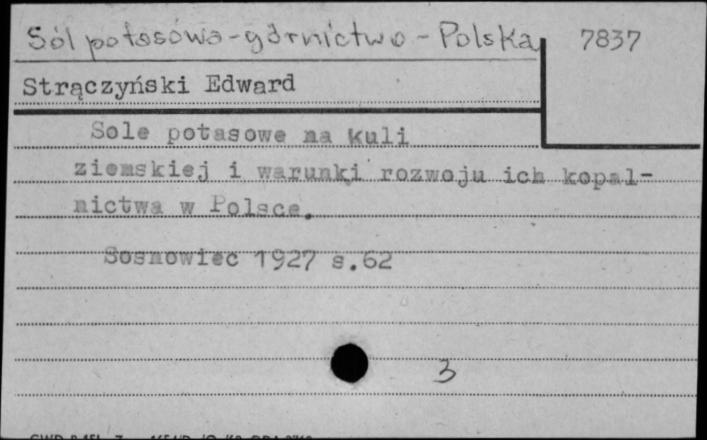 Sól potasowa - górnictwo - Polska 7837
Strączyński Edward
Sole potasowe na kuli
ziemskiej i warunki rozwoju ich kopal-
nictwa w Polsce.
Sosnowiec 1927 s.62
3